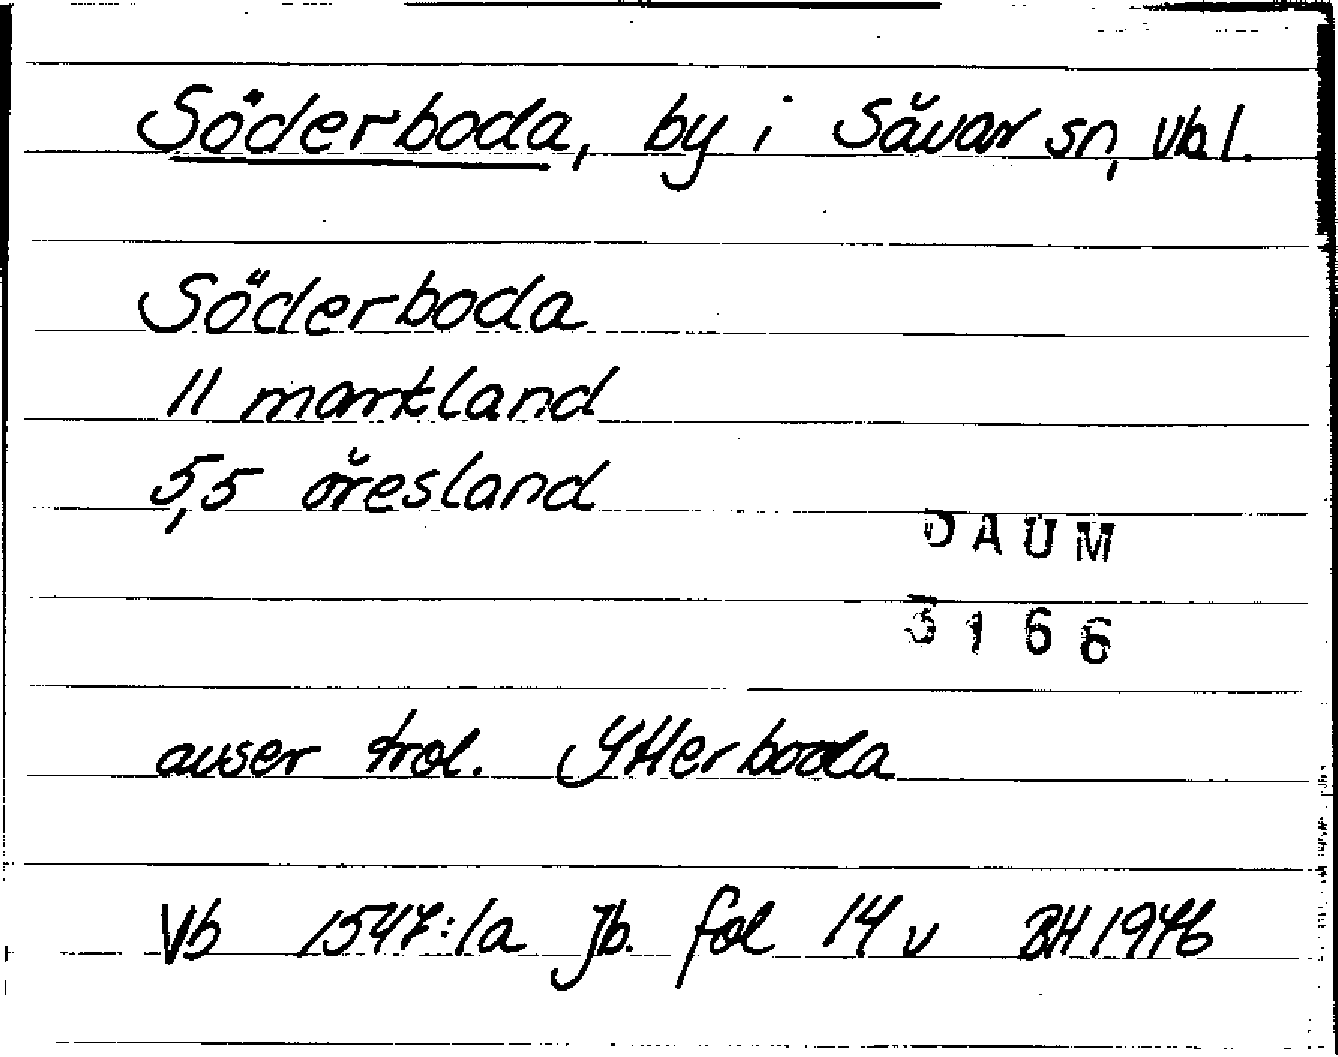 Söderboda, by i Sävar sn, Vbl.
Söderboda
11 markland
5,5 öresland
DAUM
3166
avser trol. Ytterboda
Vb 1547:1a Jb. fol 14 v BH 1976